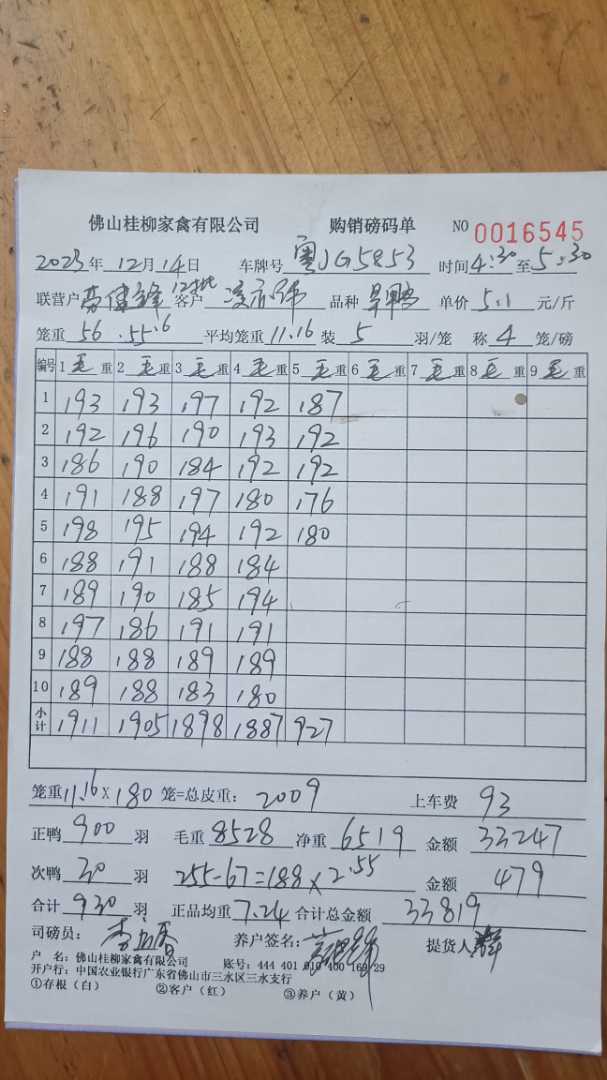 佛山桂柳家禽有限公司 购销磅码单 NO 0016545
2023年12月14日 车牌号 粤JG5853 时间4:30至5:30
联营户 12批 客户 品种 单价 5.1 元/斤
笼重 56.55.6 平均笼重 11.16 装 5 羽/笼 称 4 笼/磅
编号 1毛重 2毛重 3毛重 4毛重 5毛重 6毛重 7毛重 8毛重 9毛重
1 193 193 197 192 187
2 192 196 190 193 192
3 186 190 184 192 192
4 191 188 197 180 176
5 198 195 194 192 180
6 188 191 188 184
7 189 190 185 194
8 197 186 191 191
9 188 188 189 189
10 189 188 183 180
小计 1911 1905 1898 1887 927
笼重11.16×180笼=总皮重：2009 上车费 93
正鸭 900 羽 毛重 8528 净重 6519 金额 33247
次鸭 30 羽 255-67=188×2.55 金额 479
合计 930 羽 正品均重 7.24 合计总金额 33819
司磅员： 养户签名： 提货人
户 名：佛山桂柳家禽有限公司 账号：444 401 010 400 169 29
开户行：中国农业银行广东省佛山市三水区三水支行
①存根（白） ②客户（红） ③养户（黄）